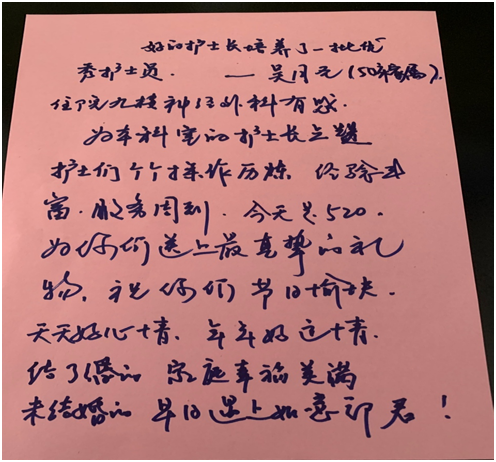 好的护士长培养了一批优
秀护士员. — 吴月元(50床家属).
住院九楼神经外科有感.
为本科室的护士长点赞
护士们个个操作历炼 经验丰
富.服务周到.今天是520.
为你们送上最真挚的礼
物,祝你们节日愉快.
天天好心情.年年好运情.
结了婚的 家庭幸福美满
未结婚的 早日遇上如意郎君!